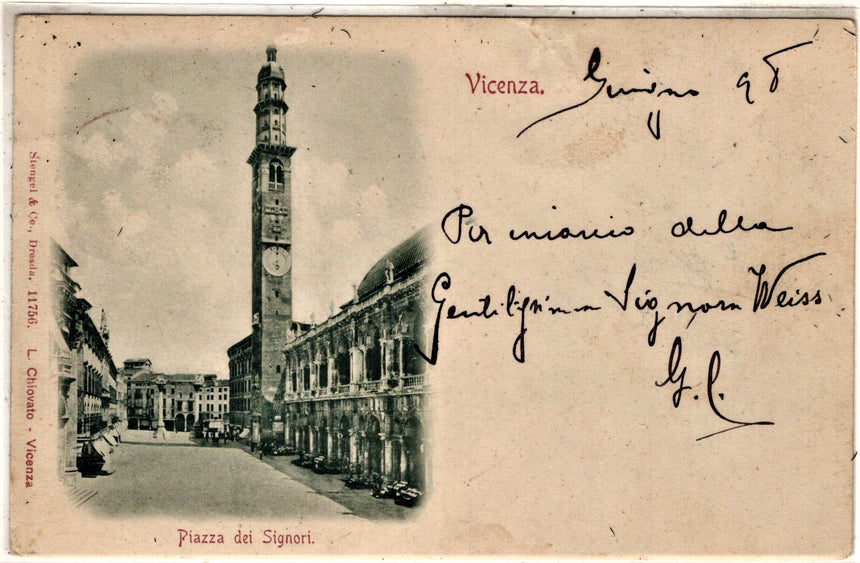 Vicenza. Giugno 98
Per incarico della
Gentilissima Signora Weiss
G. C.
Stengel & Co., Dresda. 11756. L. Chiovato - Vicenza
Piazza dei Signori.